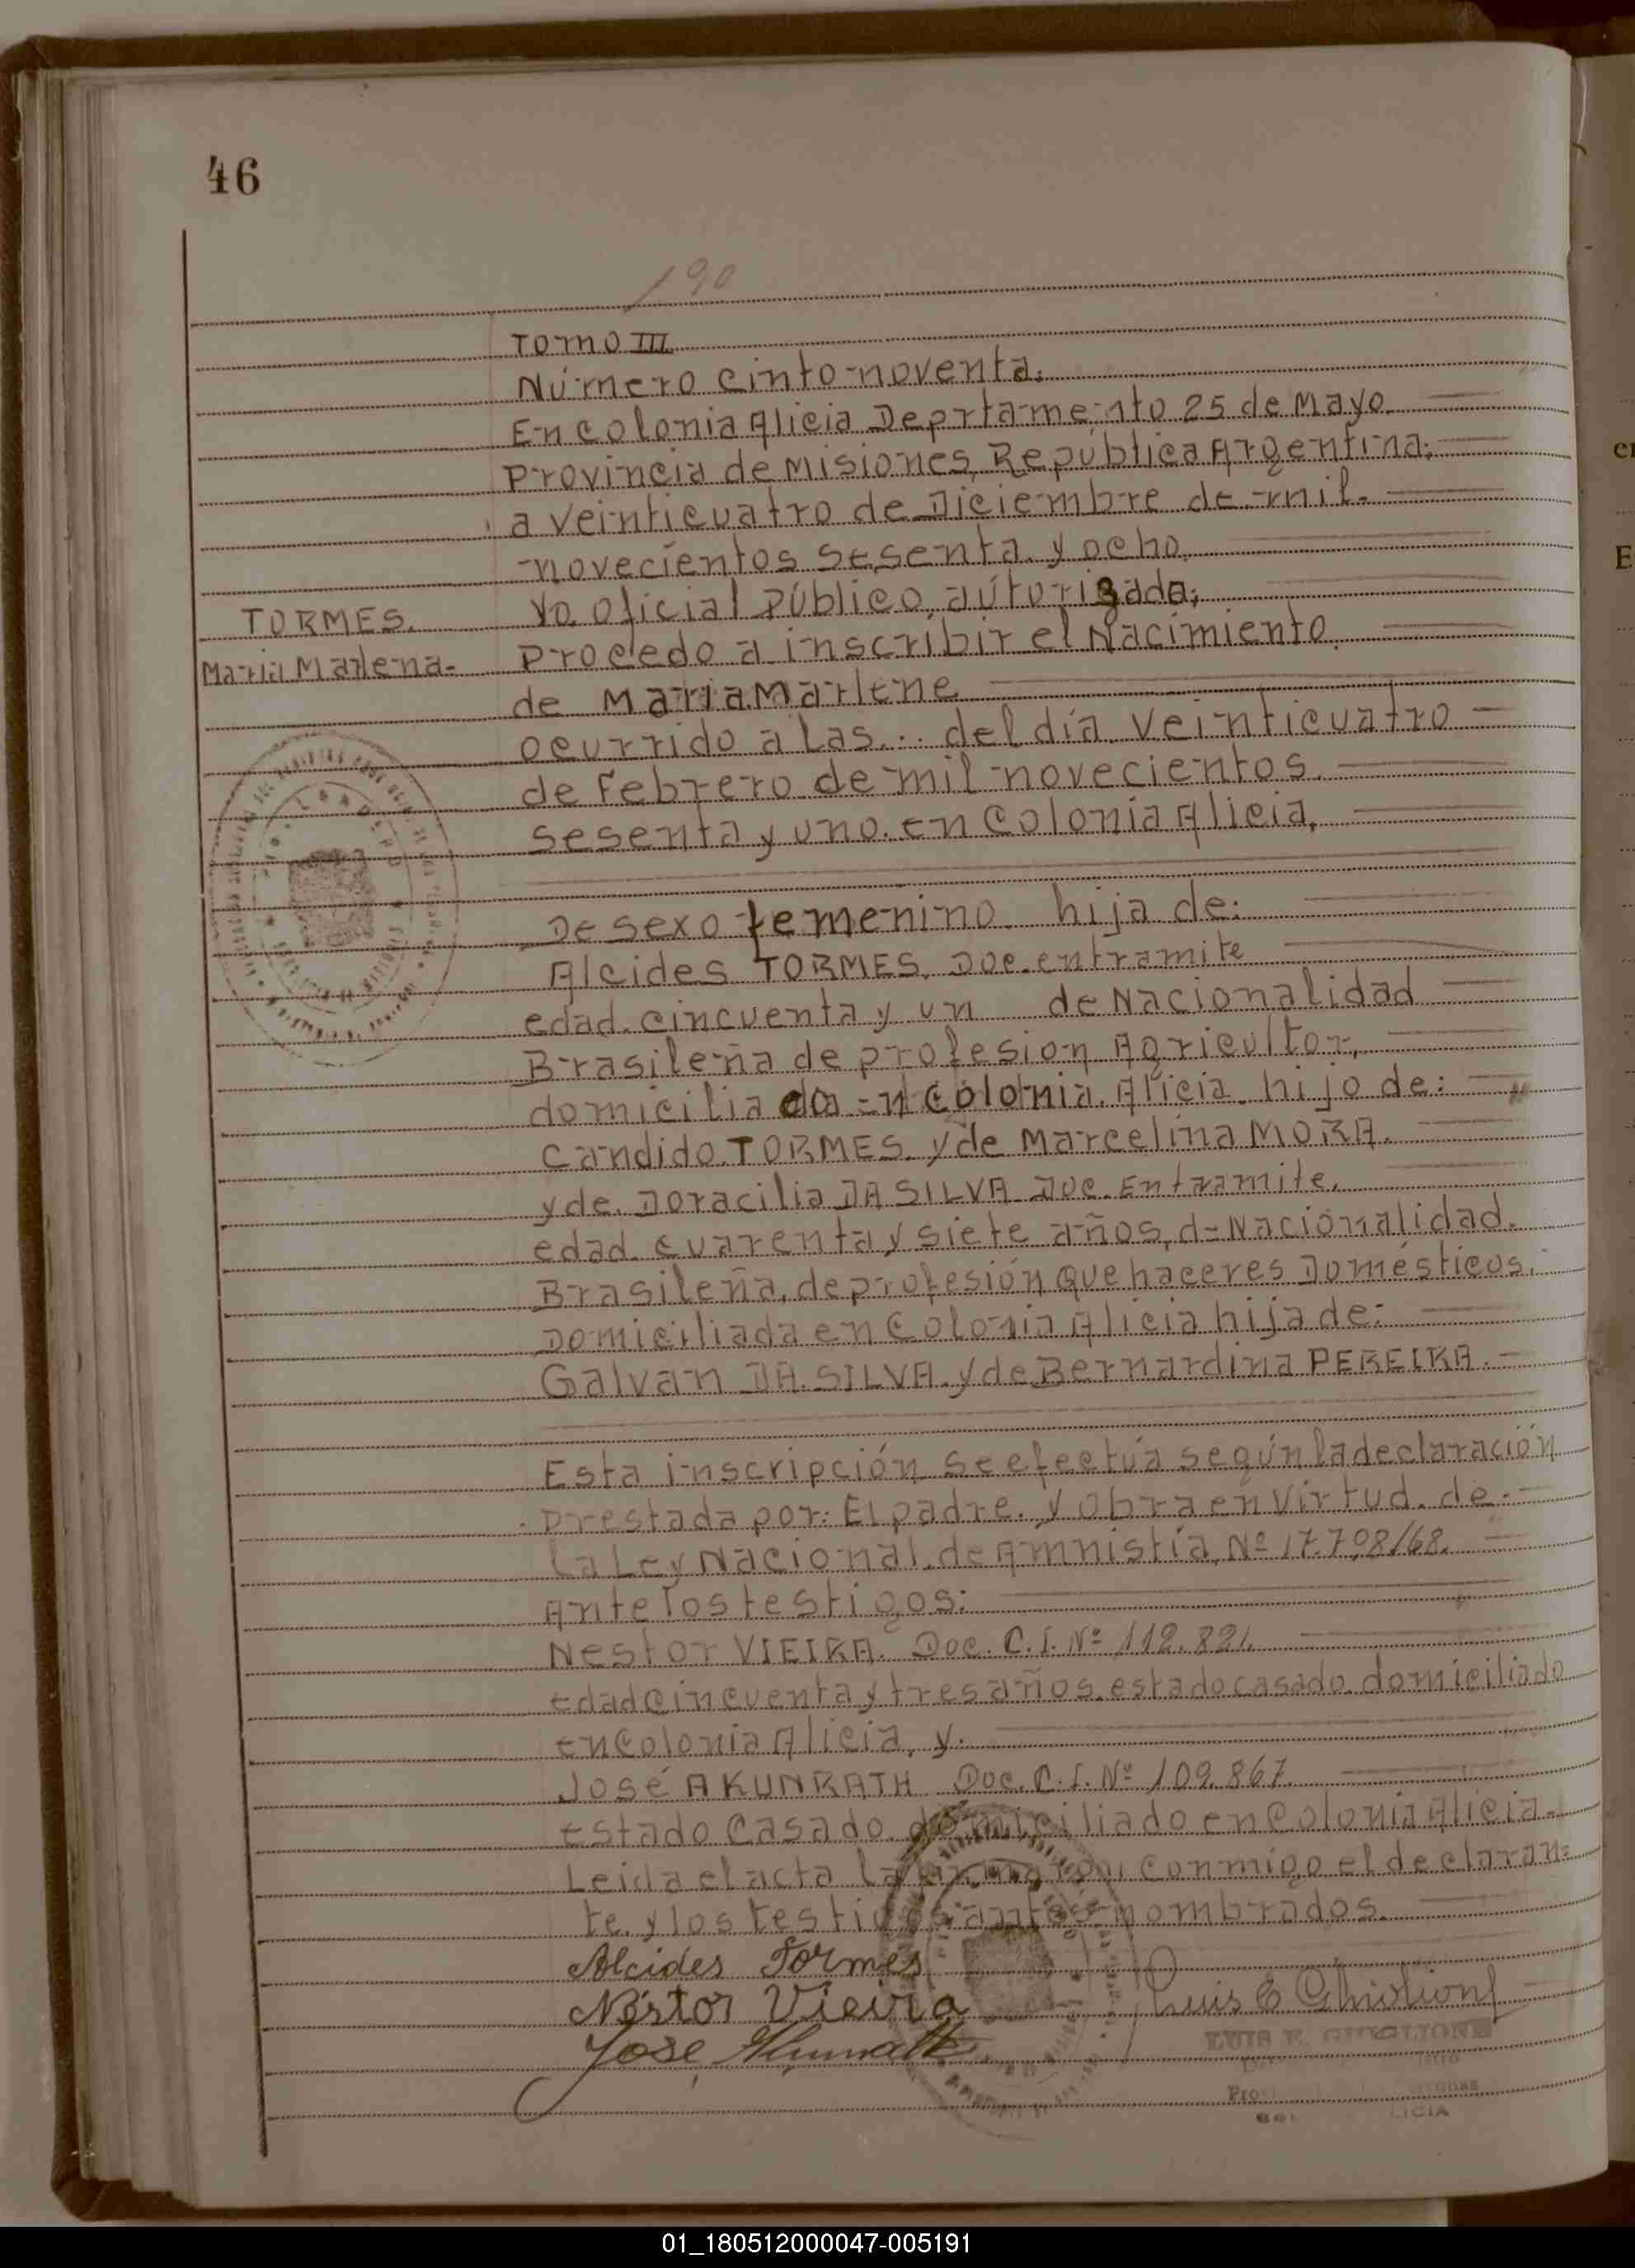 46
190
Tomo III
Número cinto noventa.
En Colonia Alicia Deprtamento 25 de Mayo
Provincia de Misiones, República Argentina;
a veinticuatro de Diciembre de mil.
novecientos sesenta y ocho.
Yo. oficial Público, autorizado;
TORMES.
Procedo a inscribir el Nacimiento.
Maria Marlena-
de Maria Marlene
ocurrido a las... del día veinticuatro
de Febrero de mil novecientos.
sesenta y uno. en Colonia Alicia,
De sexo femenino. hija de:
Alcides TORMES. Doc. en tramite
edad. cincuenta y un de Nacionalidad
Brasileña de profesion Agricultor,
domiciliado en Colonia. Alicia. hijo de:
Candido. TORMES. y de Marcelina MORA.
y de. Doracilia DA SILVA Doc. En tramite.
edad. cuarenta y siete años, de Nacionalidad.
Brasileña, de profesión Que haceres Domésticos.
Domiciliada en Colonia Alicia hija de:
Galvan DA. SILVA. y de Bernardina PEREIRA.
Esta inscripción se efectúa según la declaración
prestada por: El padre. y obra en virtud. de.
la Ley Nacional. de Amnistía, Nº 17.708/68.
Ante los testigos:
Nestor VIEIRA. Doc. C. I. Nº 112.821.
edad cincuenta y tres años. estado casado. domiciliado
en Colonia Alicia, y.
José A KUNRATH Doc. C. I. Nº 109.867
Estado Casado. domiciliado en Colonia Alicia.
Leida el acta la firmaron conmigo el declaran=
te. y los testigos antes nombrados.
Alcides Tormes
Néstor Vieira
José
LUIS E.
LICIA
01_180512000047-005191